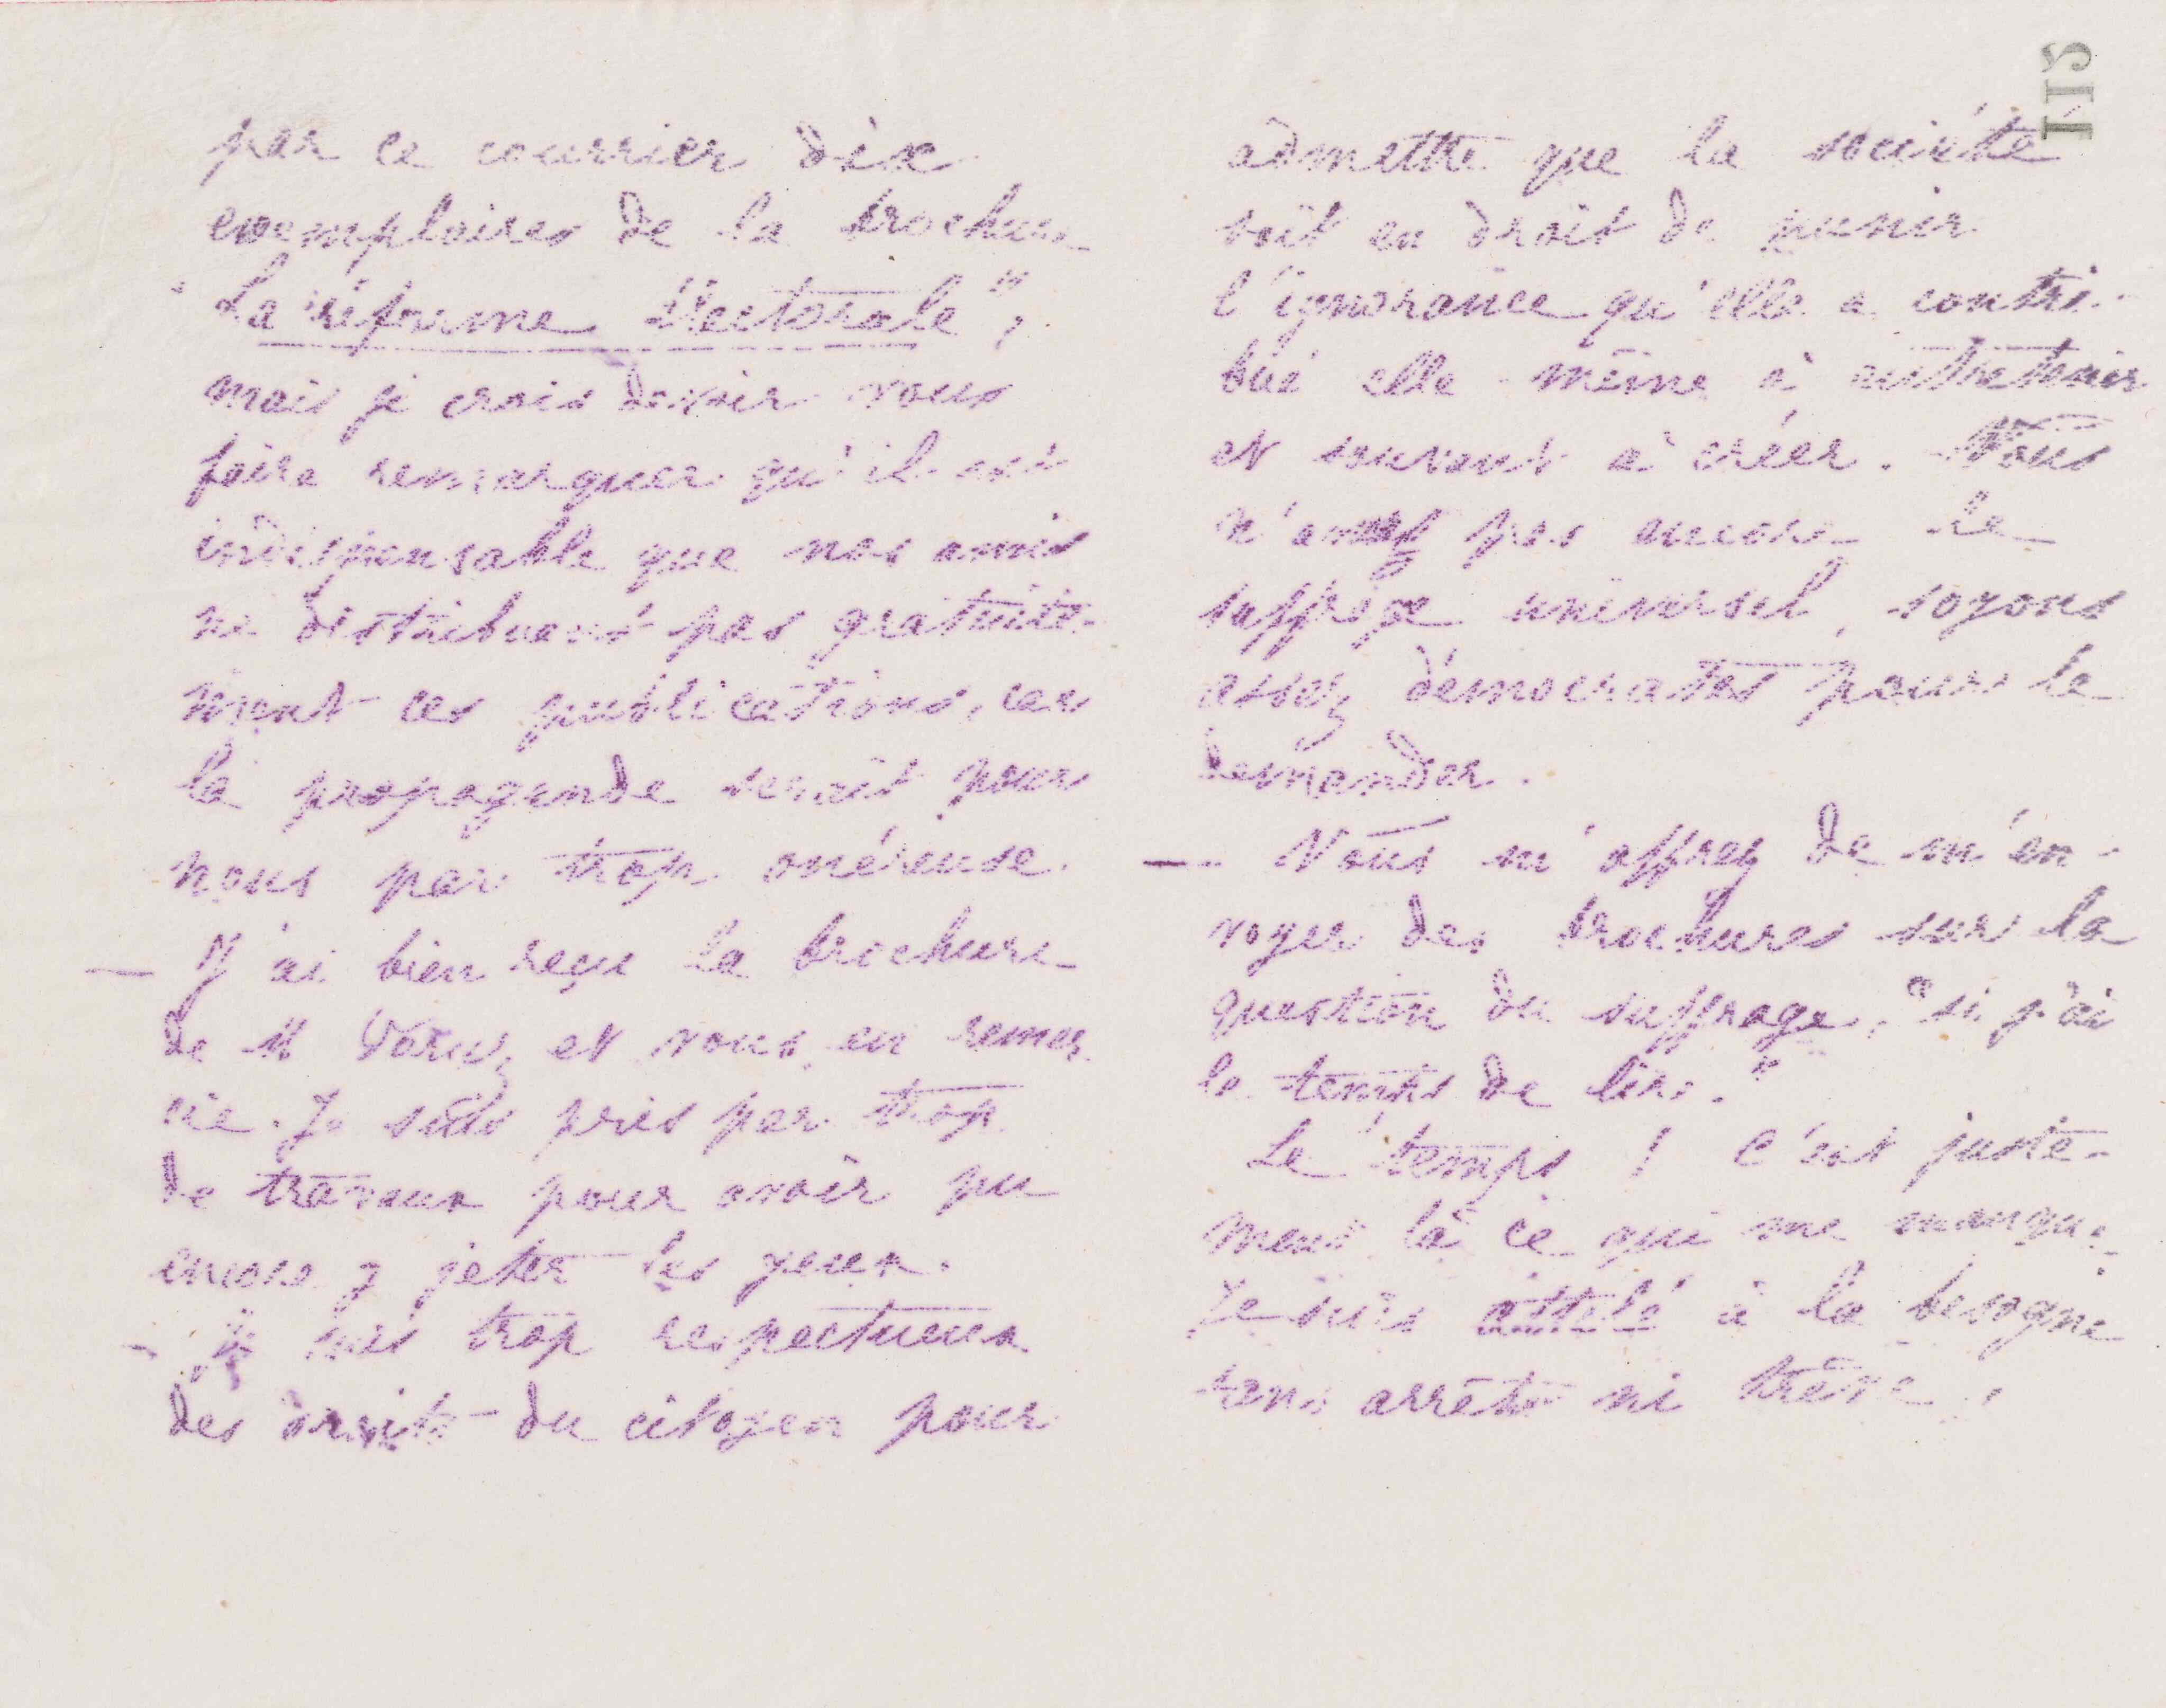 par ce courrier dix
exemplaires de la brochure
"La réforme Électorale",
mais je crois devoir vous
faire remarquer qu'il est
indispensable que nos amis
ne distribuent pas gratuite-
ment ces publications, car
la propagande serait pour
nous par trop onéreuse.
— J'ai bien reçu la brochure
de M et vous en remer
cie. Je suis pris par trop
de travaux pour avoir pu
encore y jeter les yeux.
- Je suis trop respectueux
des droits du citoyen pour
115
admettre que la société
soit en droit de punir
l'ignorance qu'elle a contri-
bué elle-même à entretenir
et souvent à créer. Vous
n'avez pas encore le
suffrage universel, soyons
assez démocrates pour le
demander.
— Vous m'offrez de m'en-
voyer des brochures sur la
question du suffrage, "si j'ai
le temps de lire."
Le temps ! C'est juste-
ment là ce qui me manque.
Je suis attelé à la besogne
sans arrêt ni trêve.